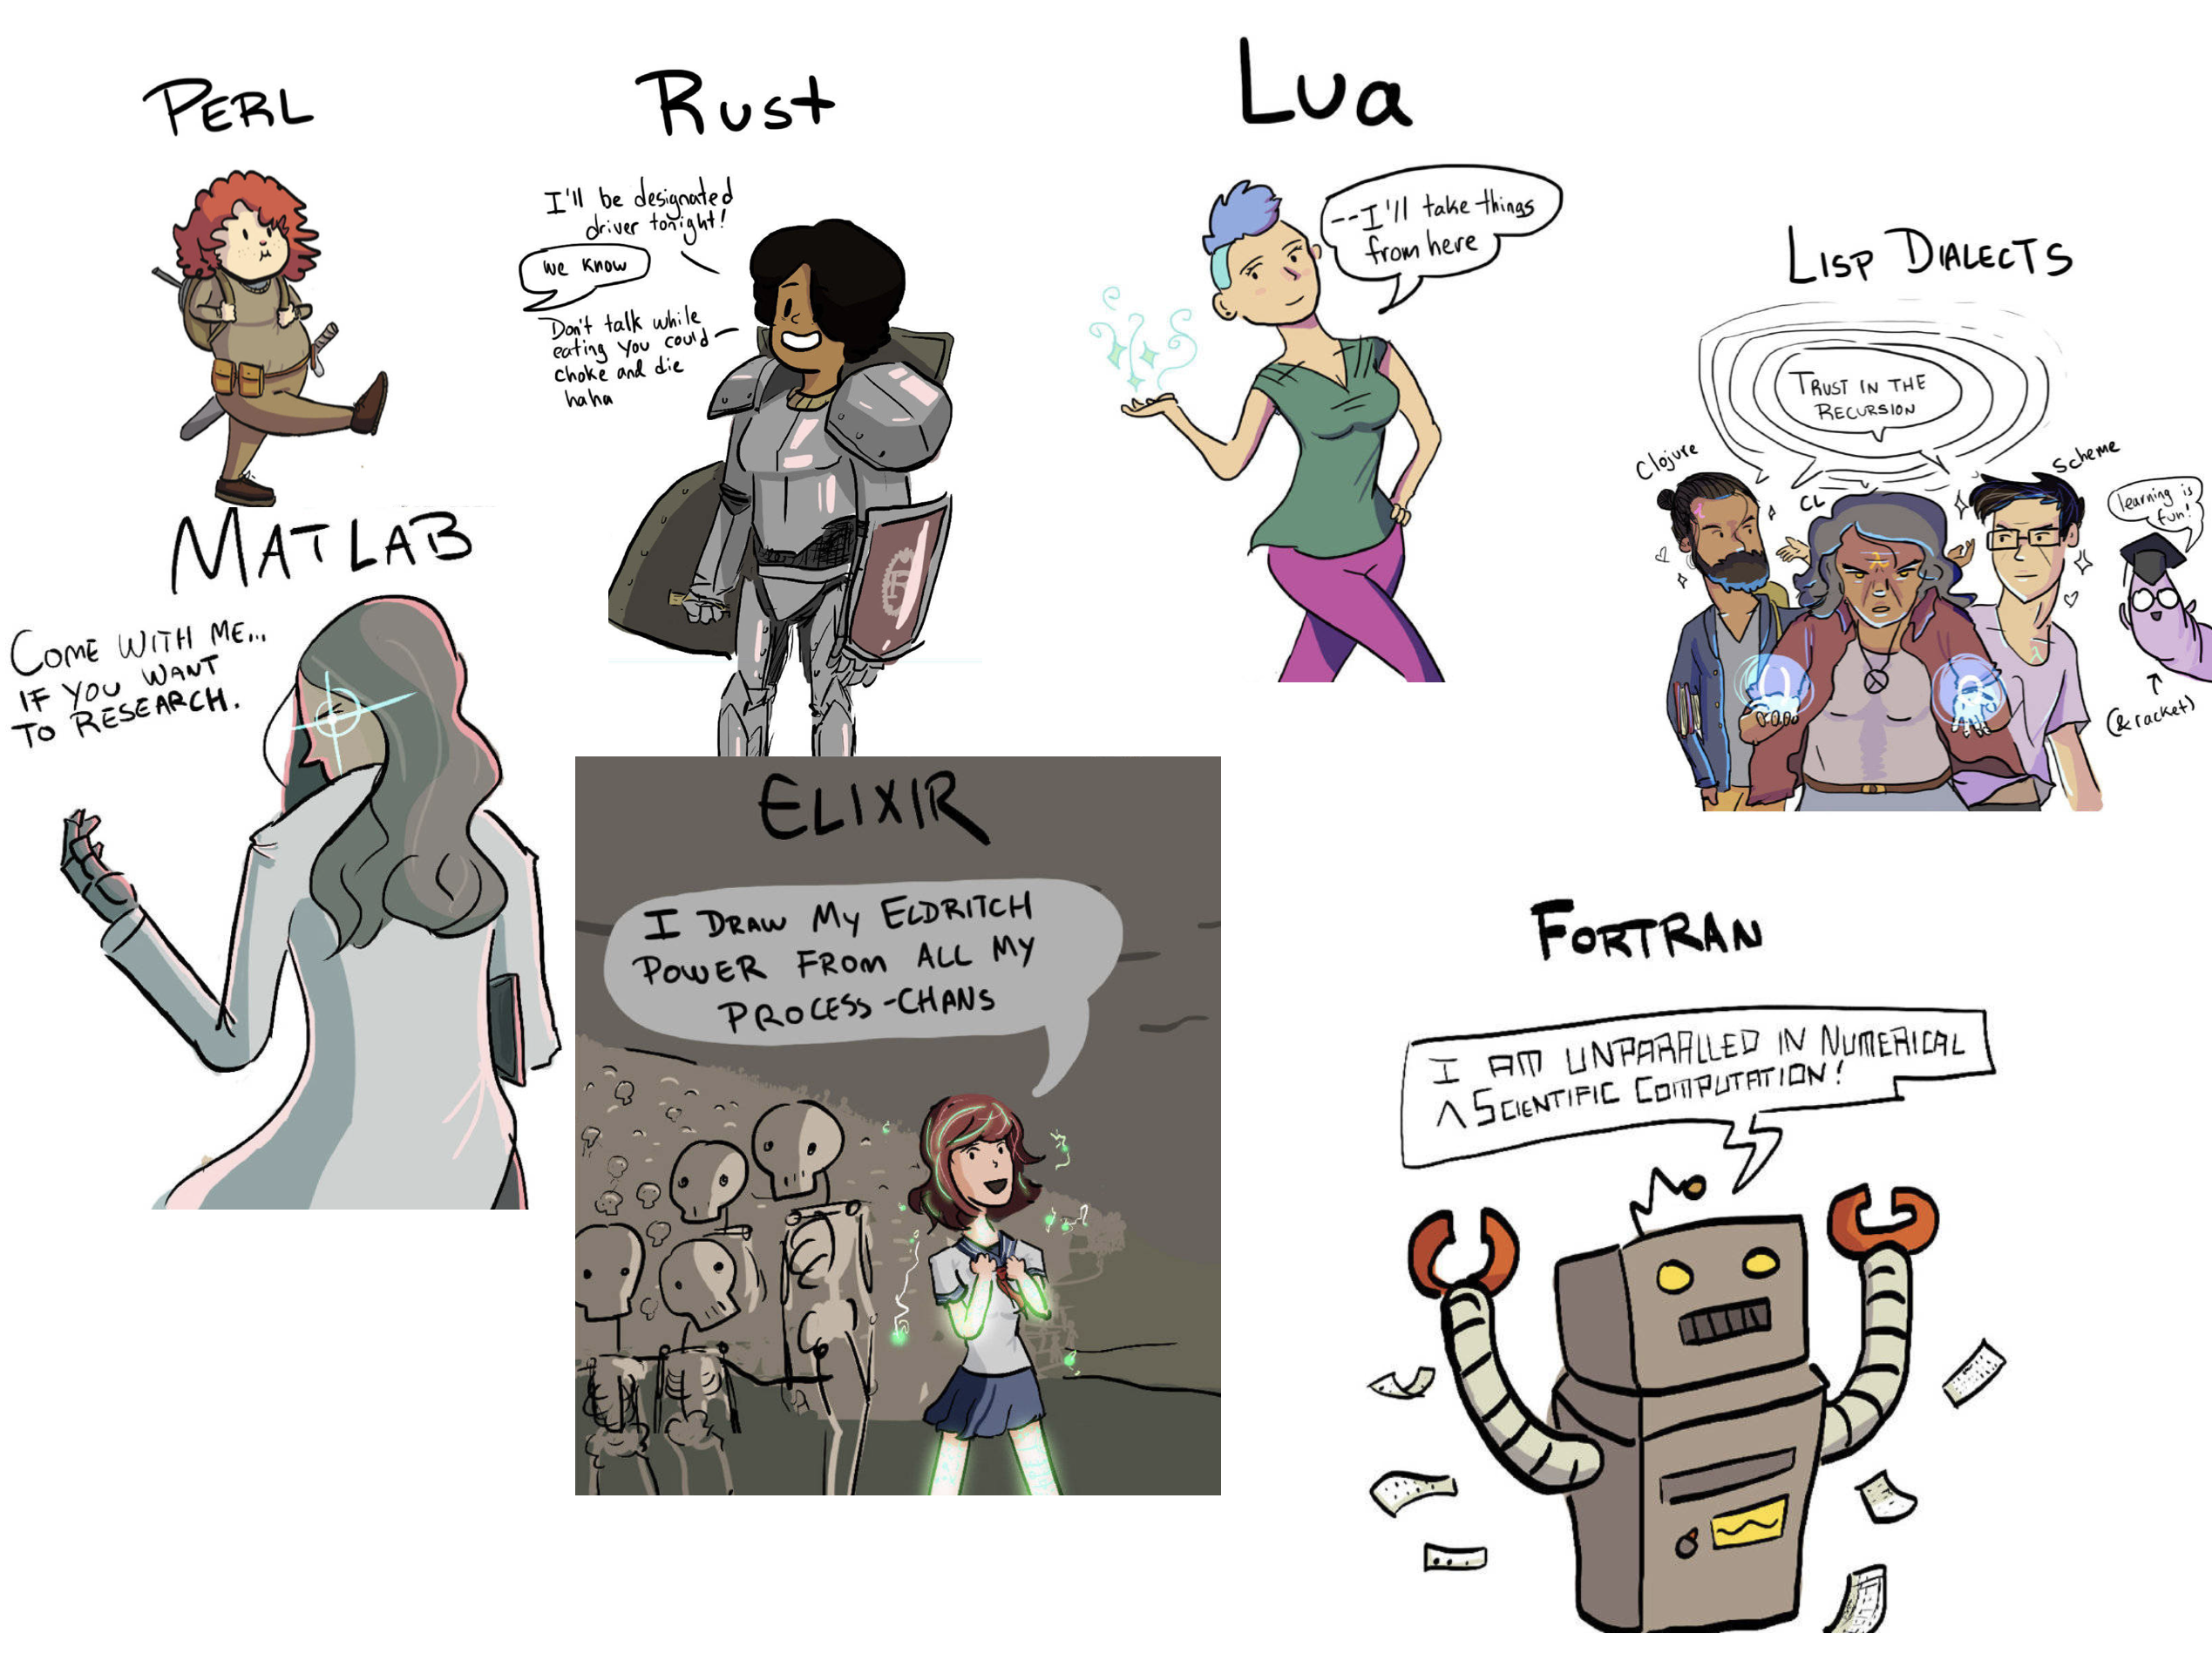 PERL
Rust
I'll be designated
driver tonight!
we know
Don't talk while
eating you could
choke and die
haha
Lua
--I'll take things
from here
LISP DIALECTS
TRUST IN THE
RECURSION
Clojure
CL
Scheme
learning is
fun!
(& racket)
MATLAB
COME WITH ME...
IF YOU WANT
TO RESEARCH.
ELIXIR
I DRAW MY ELDRITCH
POWER FROM ALL MY
PROCESS-CHANS
FORTRAN
I AM UNPARALLED IN NUMERICAL
∧ SCIENTIFIC COMPUTATION!